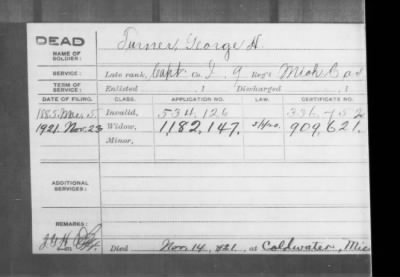 DEAD
NAME OF SOLDIER:
Turner, George H.
SERVICE:
Late rank, Capt Co. I, 9 Reg't Mich. Cav
TERM OF SERVICE:
Enlisted , 1 Discharged , 1
DATE OF FILING. CLASS. APPLICATION NO. LAW. CERTIFICATE NO.
1885. Invalid, 534,126
1921. Nov. 23 Widow, 1,182,147. 909,621.
Minor,
ADDITIONAL SERVICES:
REMARKS:
Died Nov. 14, 1921, at Coldwater, Mic